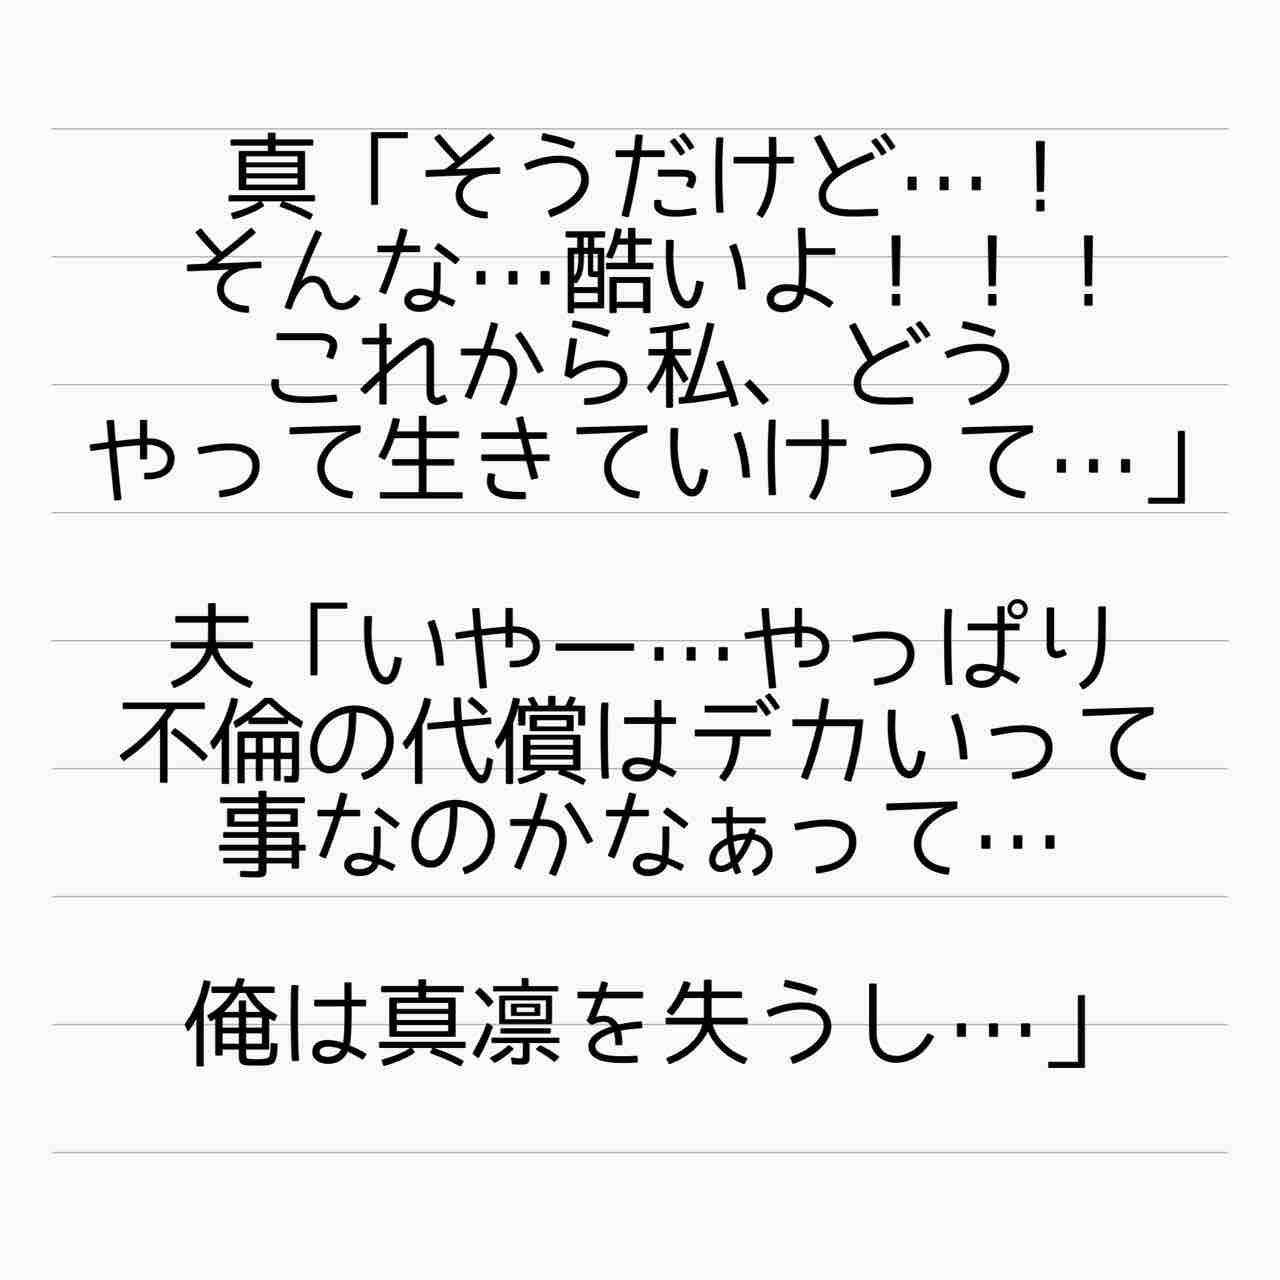 真「そうだけど…！
そんな…酷いよ！！！
これから私、どう
やって生きていけって…」
夫「いやー…やっぱり
不倫の代償はデカいって
事なのかなぁって…
俺は真凛を失うし…」